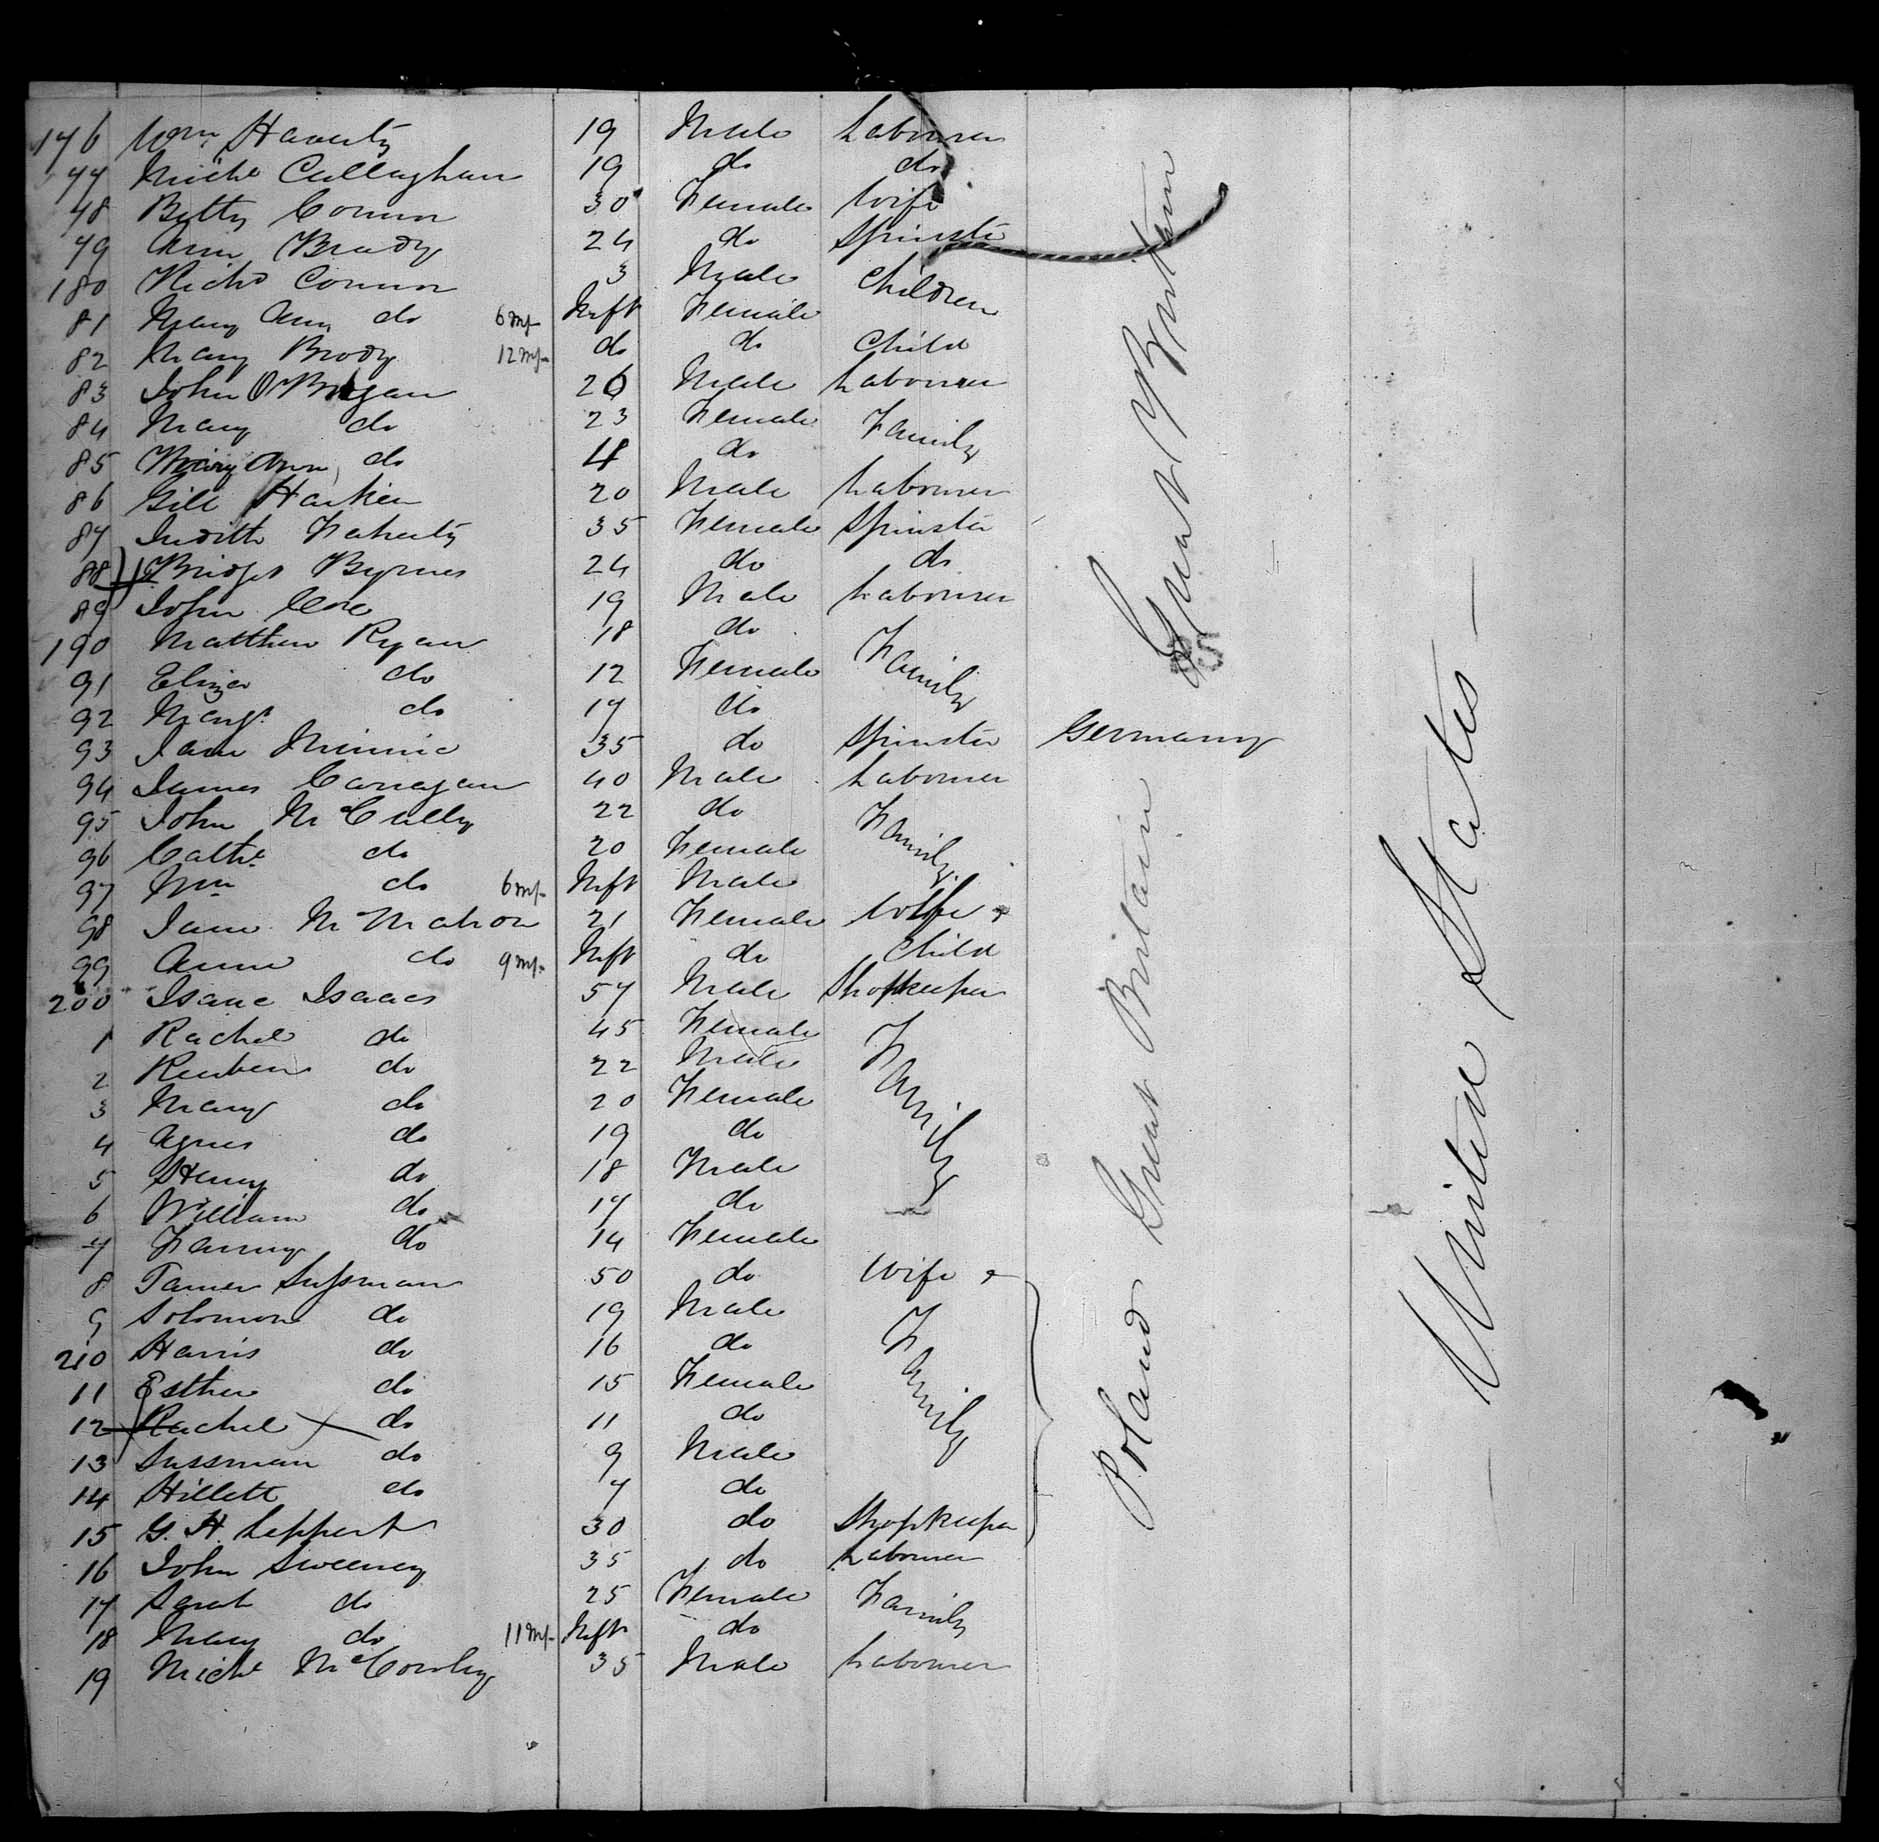 176 Wm. Haverty 19 Male Labourer
77 Michl Callaghan 19 do do
78 Betty Connor 30 Female Wife
79 Ann Brady 24 do Spinster
180 Richd Connor 3 Male Children
81 Mary Ann do 6 Ms Inft Female
82 Mary Brody 12 Ms do do Child
83 John O'Brien 26 Male Labourer
84 Mary do 23 Female Family
85 Mary Ann do do
86 Gill Harken 20 Male Labourer
87 Judith Faherty 35 Female Spinster
88 Bridget Byrnes 24 do do
89 John 19 Male Labourer
190 Matthew Ryan 18 do Family
91 Eliza do 12 Female
92 Margt do 17 do
93 Jane 35 do Spinster Germany
94 James Corregan 40 Male Labourer
95 John McCully 22 do Family
96 Cathe do 20 Female
97 Wm do 6 Ms Inft Male
98 Jane McMahon 21 Female Wife &
99 Anne do 9 Ms Inft do Child
200 Isaac Isaacs 57 Male Shopkeeper
1 Rachel do 45 Female Family
2 Reuben do 22 Male
3 Mary do 20 Female
4 Agnes do 19 do
5 Henry do 18 Male
6 William do 17 do
7 Fanny do 14 Female
8 Tamer Sussman 50 do Wife &
9 Solomon do 19 Male Family
210 Harris do 16 do
11 Esther do 15 Female
12 Rachel do 11 do
13 Sussman do 9 Male
14 Hillett do 7 do
15 G. H. Leppert 30 do Shopkeeper
16 John Sweeney 35 do Labourer
17 Sarah do 25 Female Family
18 Mary do 11 Ms Inft do
19 Michl 35 Male Labourer
Great Britain
Great Britain
Poland
United States